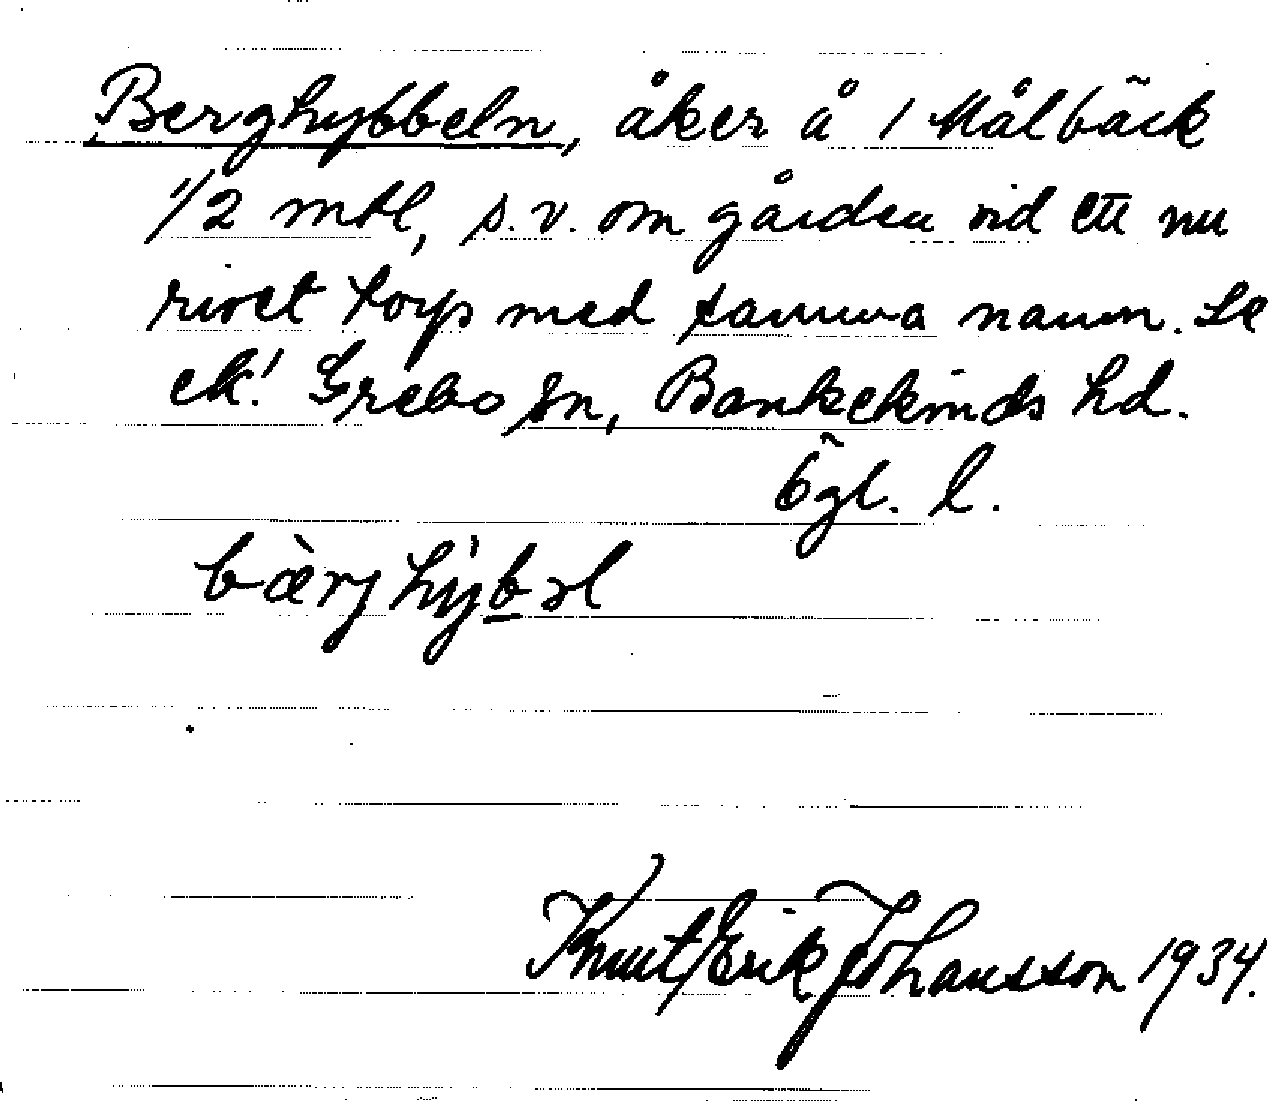 Berghybbeln, åker å 1 Målbäck
1/2 mtl, s.v. om gården vid ett nu
rivet torp med samma namn. Se
ek! Grebo sn, Bankekinds hd.
Ögl. l.
bærjhỳbəl
Knut Erik Johansson 1934.